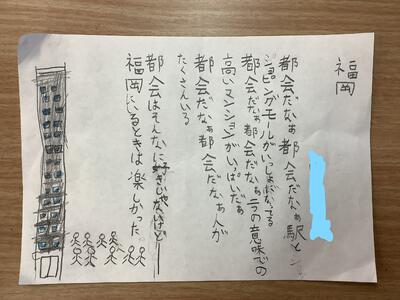 福岡
都会だなぁ都会だなぁ駅と
ショッピングモールがいっしょになってる
都会だなぁ都会だなぁ二つの意味での
高いマンションがいっぱいだぁ
都会だなぁ都会だなぁ人が
たくさんいる
都会はそんなに好きじゃないけど
福岡にいるときは楽しかった。